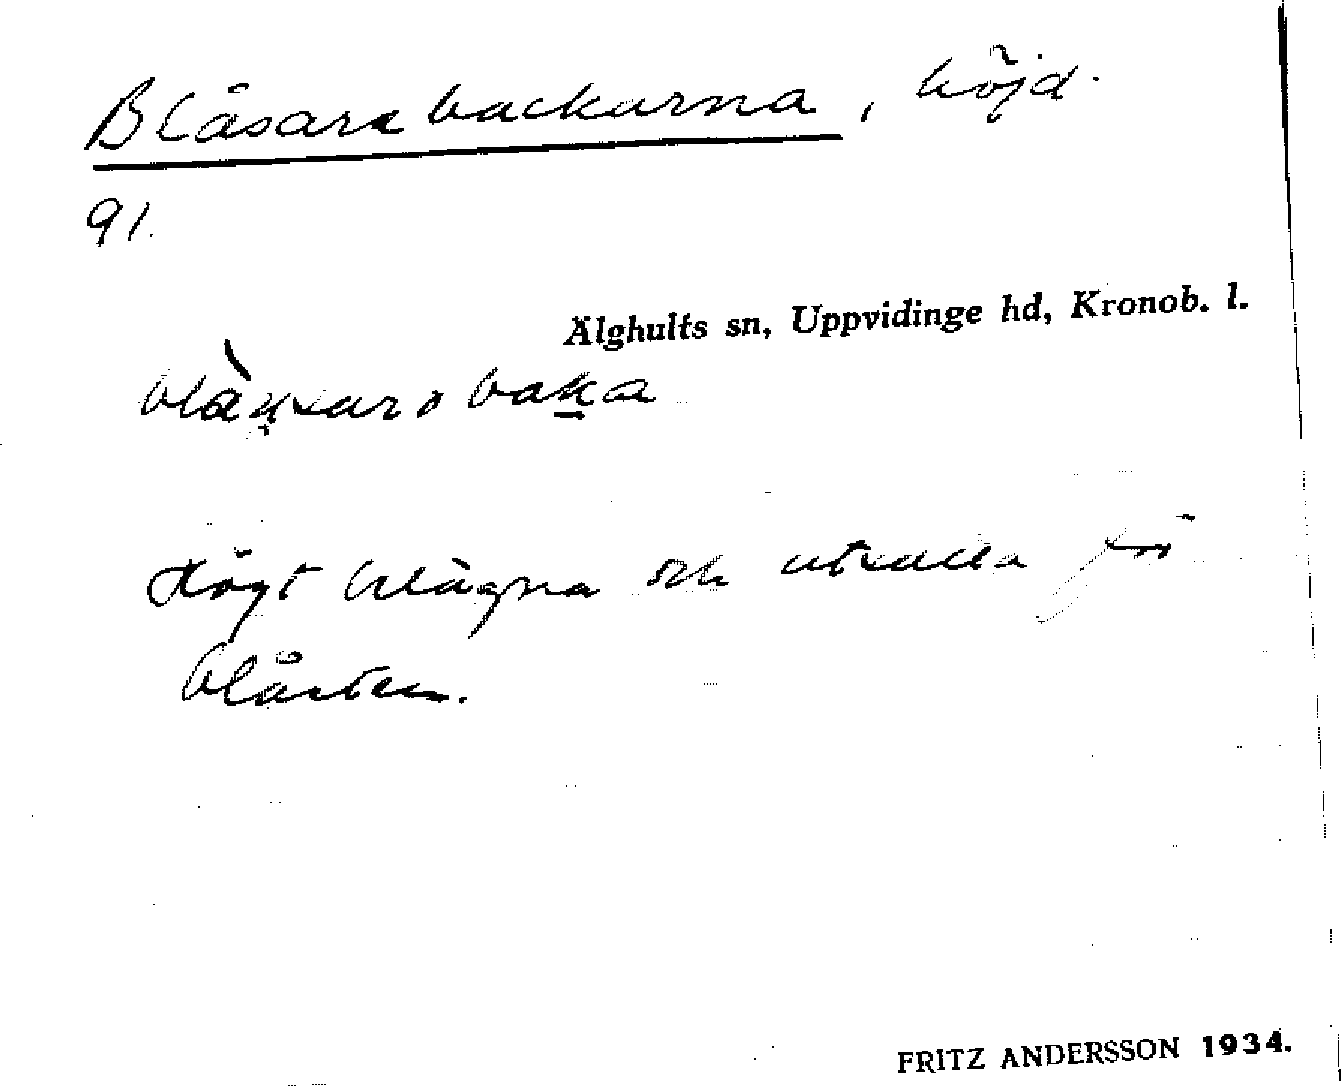 Blåsarebackarna, höjd.
91.
Älghults sn, Uppvidinge hd, Kronob. l.
Högt belägna och utsatta för
blåsten.
FRITZ ANDERSSON 1934.